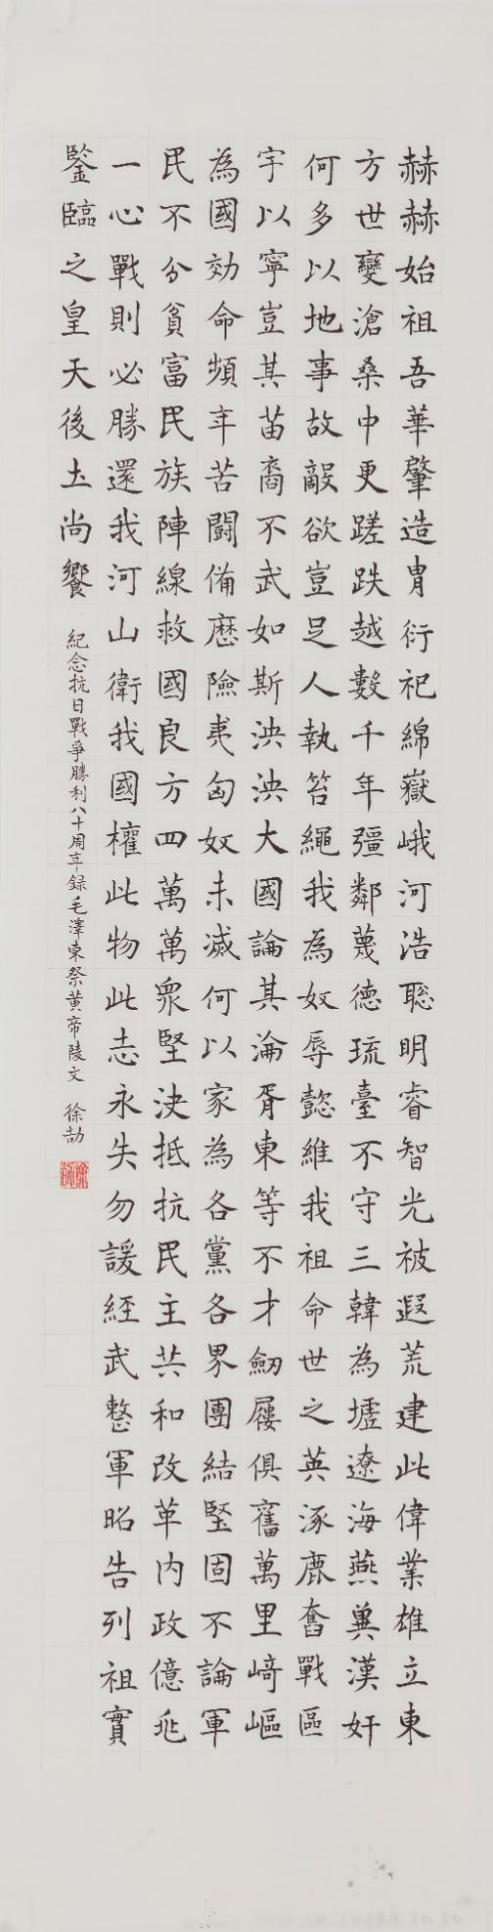 赫赫始祖吾華肇造胄衍祀綿嶽峨河浩聰明睿智光被遐荒建此偉業雄立東
方世變滄桑中更蹉跌越數千年彊鄰蔑德琉臺不守三韓為墟遼海燕冀漢奸
何多以地事故敵欲豈足人執笞繩我為奴辱懿維我祖命世之英涿鹿奮戰區
宇以寧豈其苗裔不武如斯泱泱大國論其淪胥東等不才劒屨俱舊萬里崎嶇
為國効命頻年苦鬪備歷險夷匈奴未滅何以家為各黨各界團結堅固不論軍
民不分貧富民族陣線救國良方四萬萬眾堅決抵抗民主共和改革內政億兆
一心戰則必勝還我河山衛我國權此物此志永失勿諼經武整軍昭告列祖實
鑒臨之皇天後土尚饗 紀念抗日戰爭勝利八十周年録毛澤東祭黄帝陵文 徐劼